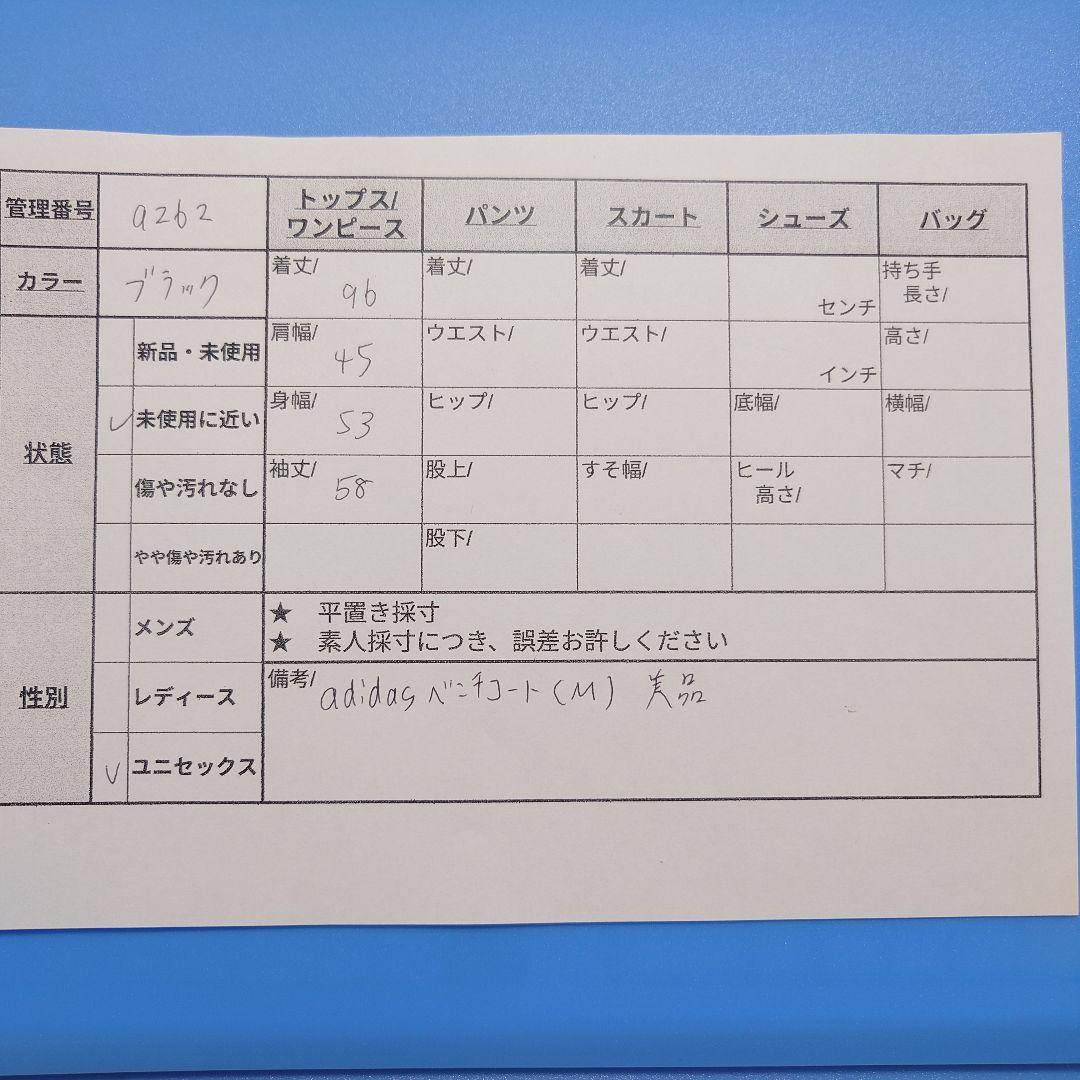 管理番号 a262 トップス/ パンツ スカート シューズ バッグ
ワンピース
カラー ブラック 着丈/ 96 着丈/ 着丈/ センチ 持ち手
長さ/
新品・未使用 肩幅/ 45 ウエスト/ ウエスト/ インチ 高さ/
状態 ✓ 未使用に近い 身幅/ 53 ヒップ/ ヒップ/ 底幅/ 横幅/
傷や汚れなし 袖丈/ 58 股上/ すそ幅/ ヒール マチ/
高さ/
やや傷や汚れあり 股下/
メンズ ★ 平置き採寸
★ 素人採寸につき、誤差お許しください
性別 レディース 備考/ adidas ベンチコート(M) 美品
✓ ユニセックス